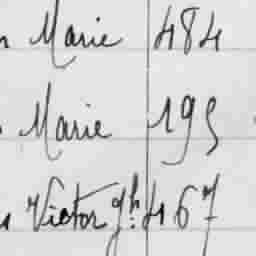 Marie 484
Marie 195
Victor gh. 467